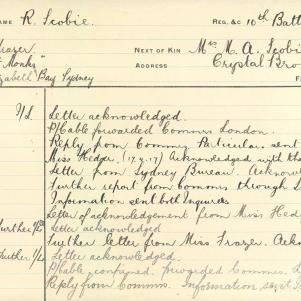 NAME R. Scobie. REG. &C 10th Batt
Frazer. NEXT OF KIN Mrs M. A. Scobi
Monky" ADDRESS Crystal Bro
zabeth Bay Sydney
Letter acknowledged.
P/Cable forwarded Commrs London.
Reply from Commrs Particulars sent
Miss Hedger (17.9.17) Acknowledged with tha
Letter from Sydney Bureau. Acknow
Further report from Commrs through L
Information sent both Inquirers
Letter of acknowledgement from Miss Hed
urther Letter acknowledged
Further letter from Miss Frazer. Ack
urther Letter acknowledged.
P/Cable confirmed. forwarded Commrs L
Reply from Commrs. Information sent